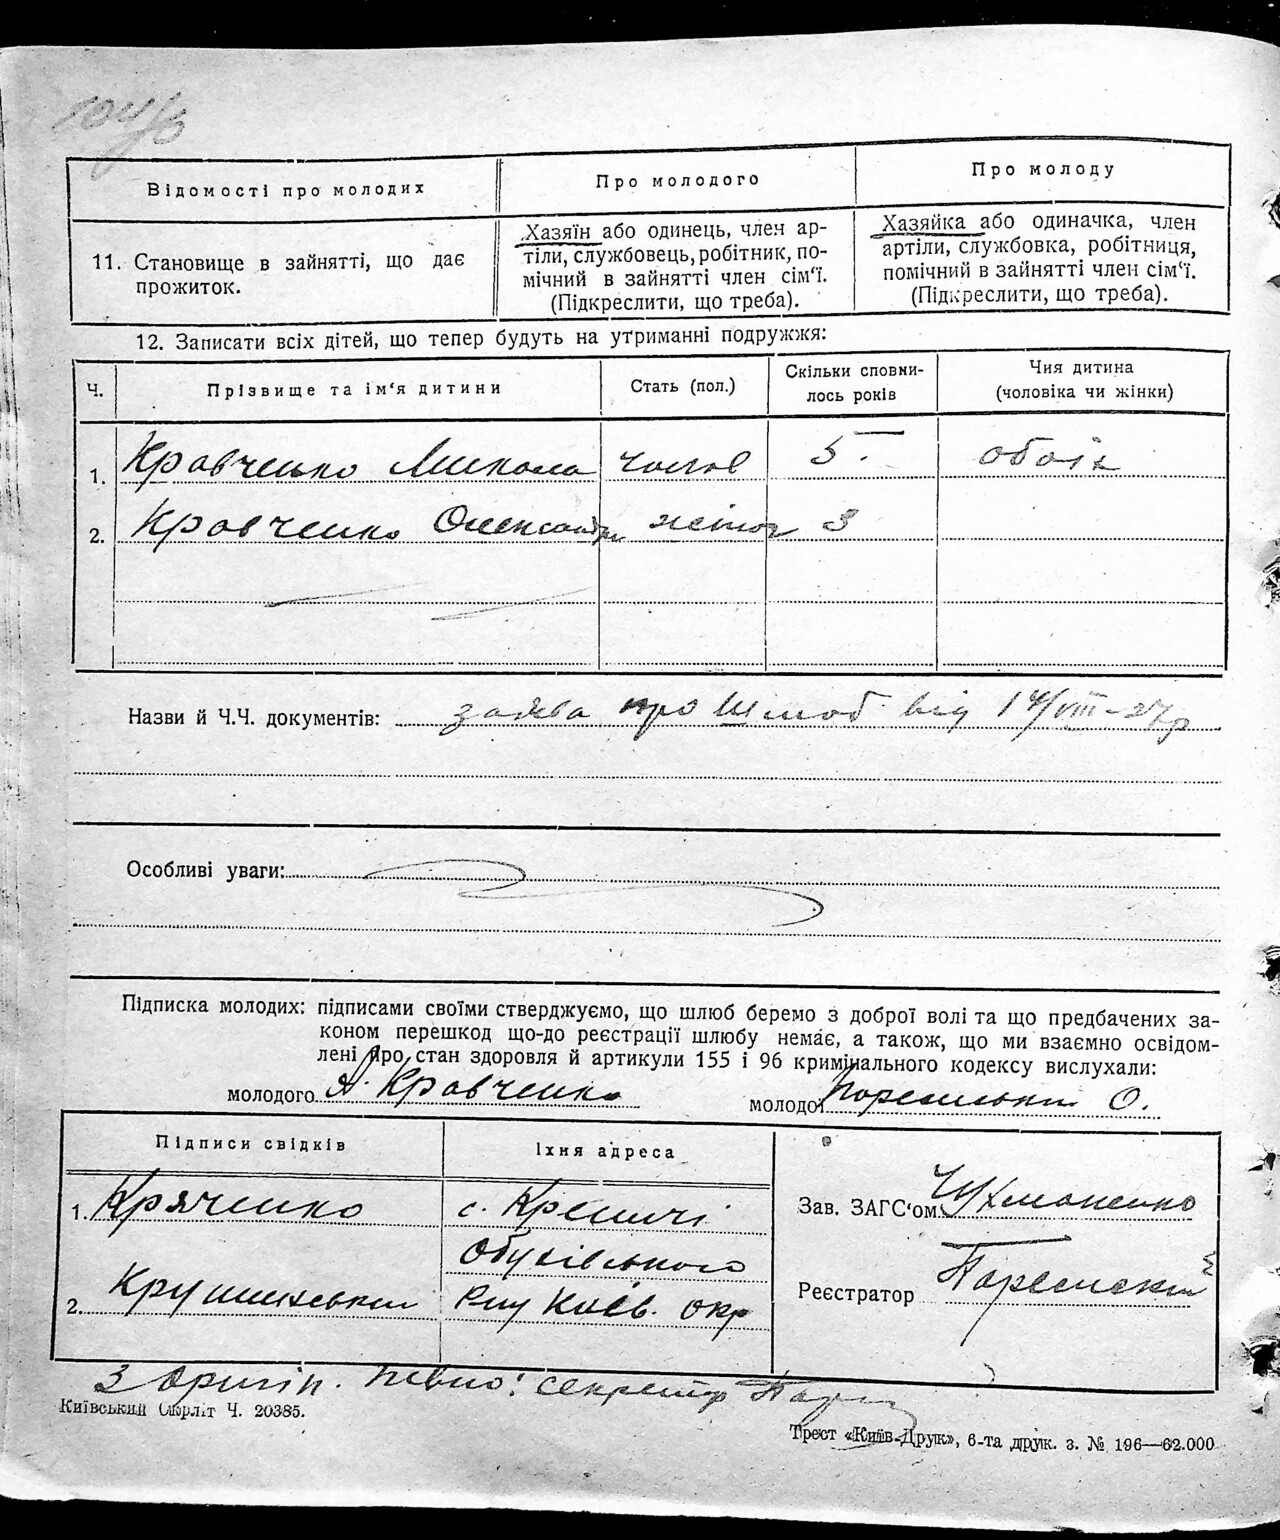 104/б
Відомості про молодих
Про молодого
Про молоду
11. Становище в зайнятті, що дає
прожиток.
Хазяїн або одинець, член ар-
тіли, службовець, робітник, по-
мічний в зайнятті член сім'ї.
(Підкреслити, що треба).
Хазяйка або одиначка, член
артіли, службовка, робітниця,
помічний в зайнятті член сім'ї.
(Підкреслити, що треба).
12. Записати всіх дітей, що тепер будуть на утриманні подружжя:
Ч.
Прізвище та ім'я дитини
Стать (пол.)
Скільки сповни-
лось років
Чия дитина
(чоловіка чи жінки)
1. Кравченко Микола чолов 5. обоїх
2. Кравченко Олександра жіноч 3
Назви й Ч.Ч. документів: заява про шлюб від 14/VIII-27р
Особливі уваги:
Підписка молодих: підписами своїми стверджуємо, що шлюб беремо з доброї волі та що предбачених за-
коном перешкод що-до реєстрації шлюбу немає, а також, що ми взаємно освідом-
лені про стан здоровля й артикули 155 і 96 кримінального кодексу вислухали:
молодого А. Кравченко
молодої О.
Підписи свідків
Їхня адреса
1. Кряченко
с. Креничі
Обухівського
2.
Р-ну Київ. окр
Зав. ЗАГС'ом
Реєстратор
З оригін. певно: секретар
Київський Окрліт Ч. 20385.
Трест «Київ-Друк», 6-та друк. з. № 196—62.000